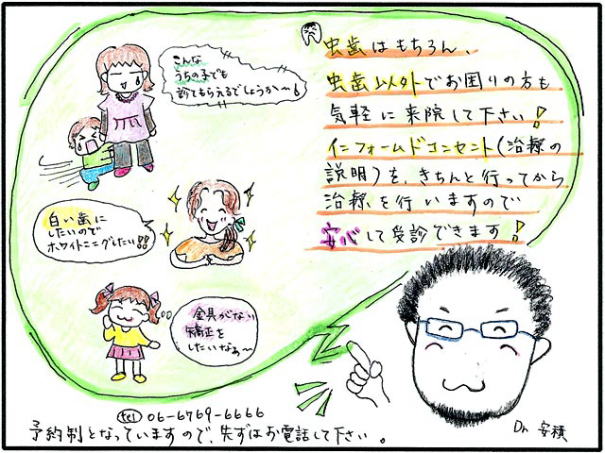 虫歯はもちろん、
虫歯以外でお困りの方も
気軽に来院して下さい!
インフォームドコンセント(治療の
説明)を、きちんと行ってから
治療を行いますので
安心して受診できます!
こんな
うちの子でも
診てもらえるでしょうか〜
白い歯に
したいので
ホワイトニングしたい!!
金具がない
矯正を
したいなぁ〜
Dr 安積
tel 06-6769-6666
予約制となっていますので、先ずはお電話して下さい。